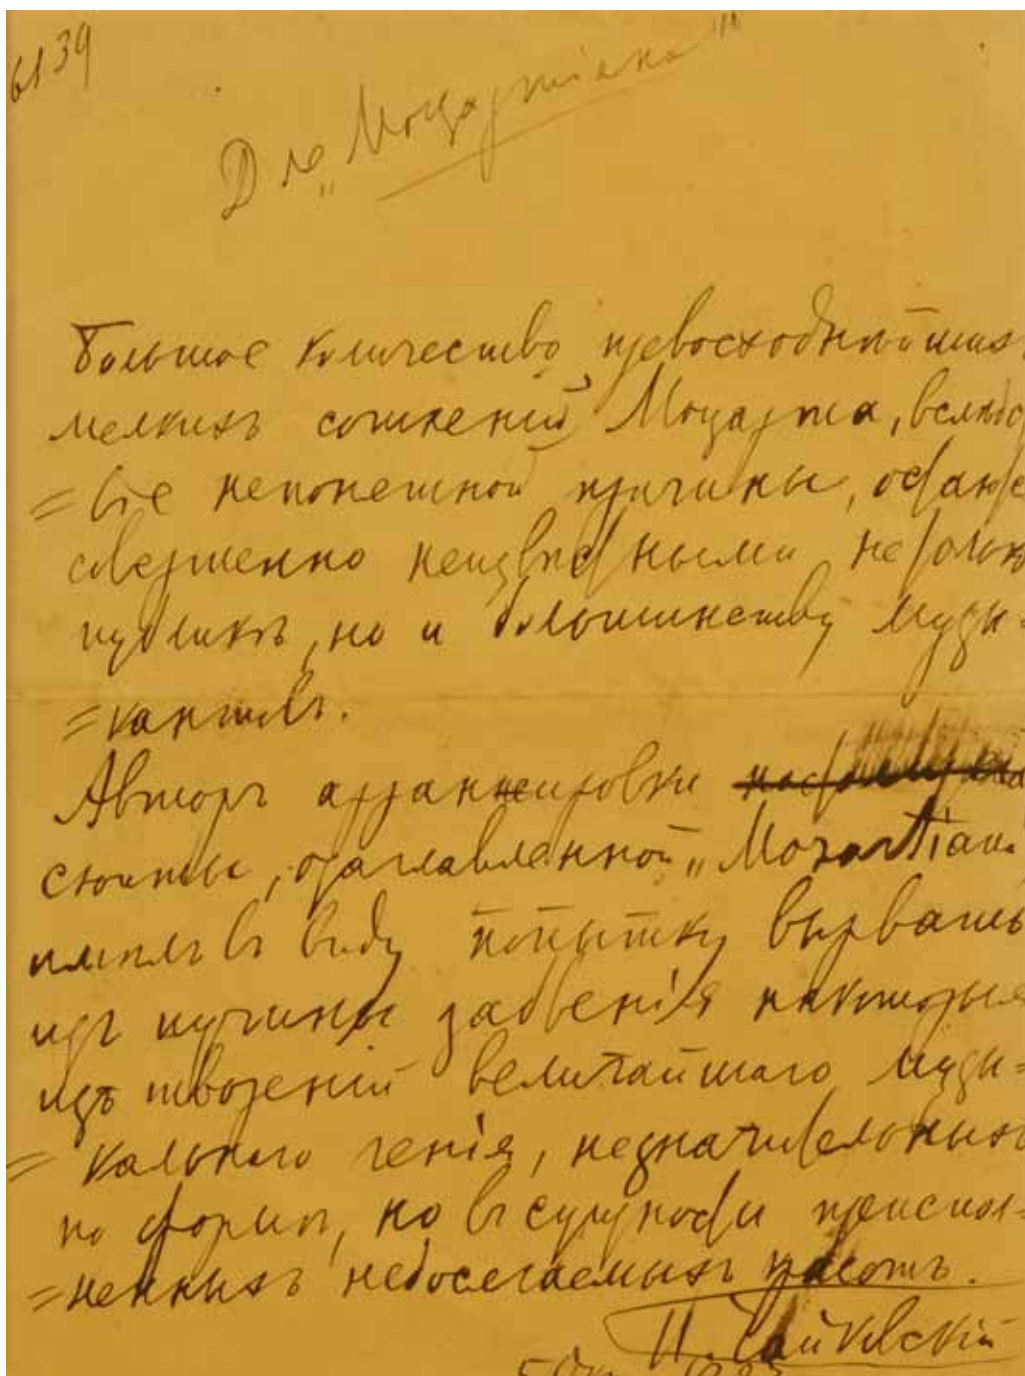 6139
Для „Моцартiана"
Большое количество превосходнѣйшихъ
мелкихъ сочиненiй Моцарта, вслѣдс
=вiе непонятной причины, остаютс
совершенно неизвѣстными не только
публикѣ, но и большинству музы=
=кантовъ.
Авторъ арранжировки
сюиты, озаглавленной „Mozartiana
имѣлъ въ виду попытку вырвать
изъ пучины забвенiя некоторыя
изъ творенiй величайшаго музы=
=кальнаго генiя, незначительныхъ
по формѣ, но въ сущности преиспол=
=ненныхъ недосягаемыхъ красотъ.
П. Чайковскiй